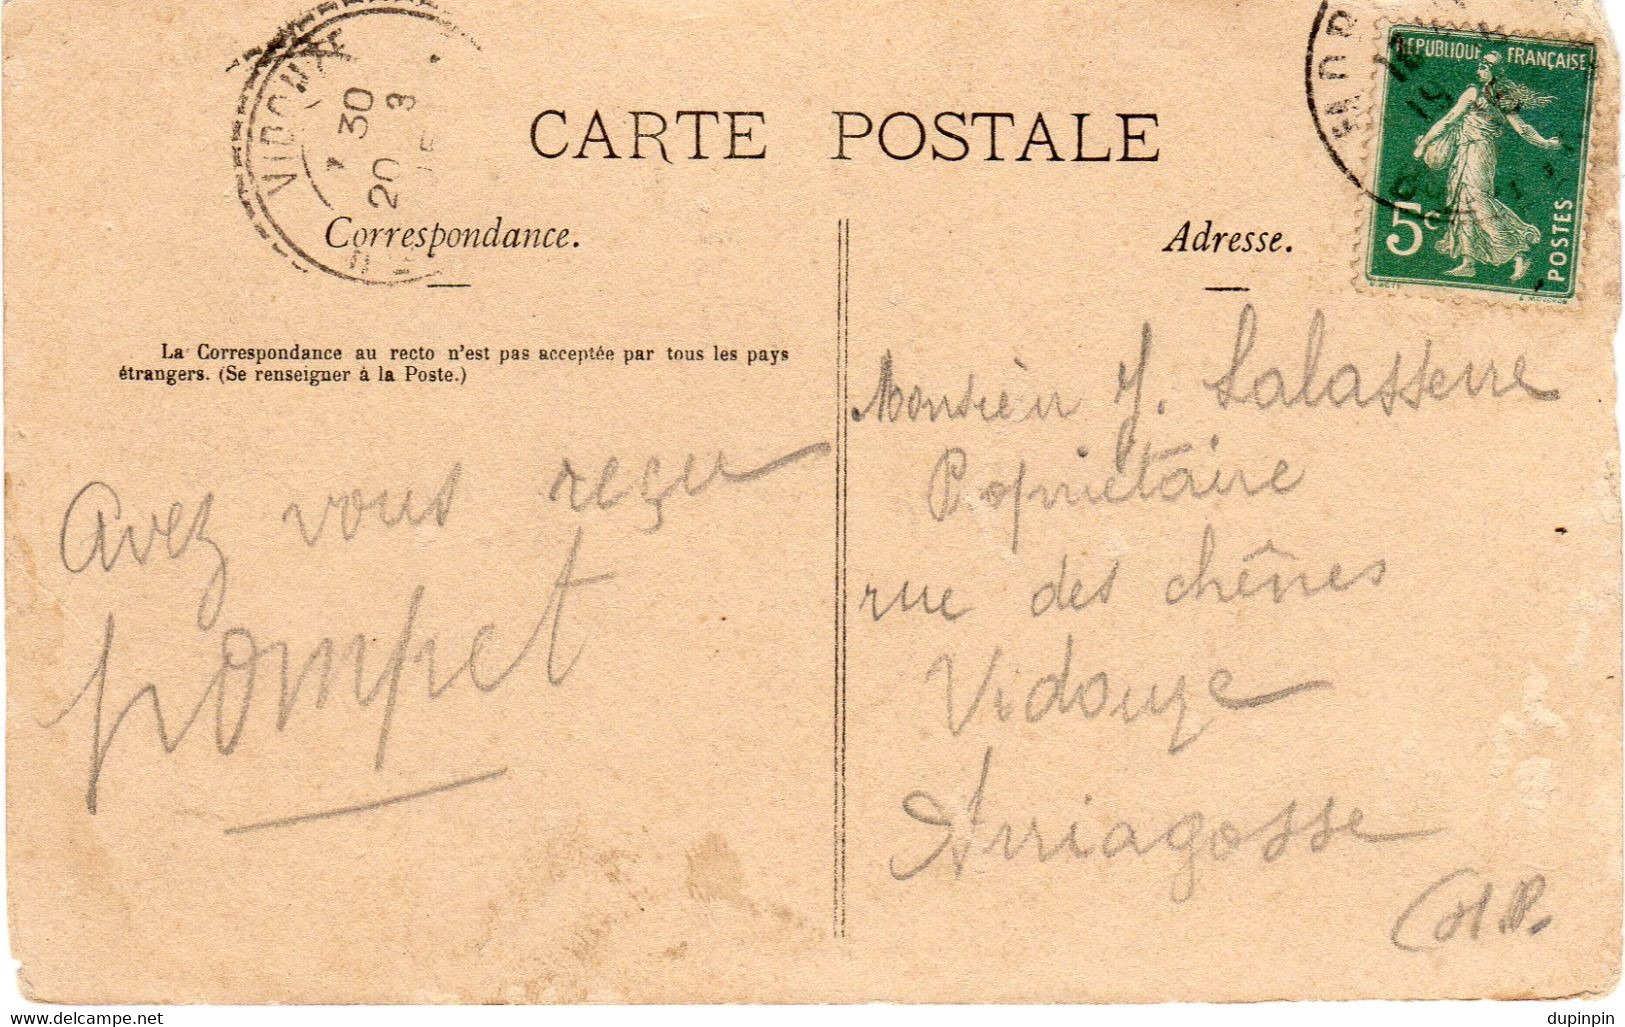 CARTE POSTALE
Correspondance.
Adresse.
REPUBLIQUE FRANÇAISE
5c
POSTES
VIDOUZE
30
20 3
La Correspondance au recto n'est pas acceptée par tous les pays
étrangers. (Se renseigner à la Poste.)
Avez vous reçu
pompet
Monsieur J. Lalasserre
Propriétaire
rue des chênes
Vidouze
Arriagosse
(H.P.
www.delcampe.net
dupinpin